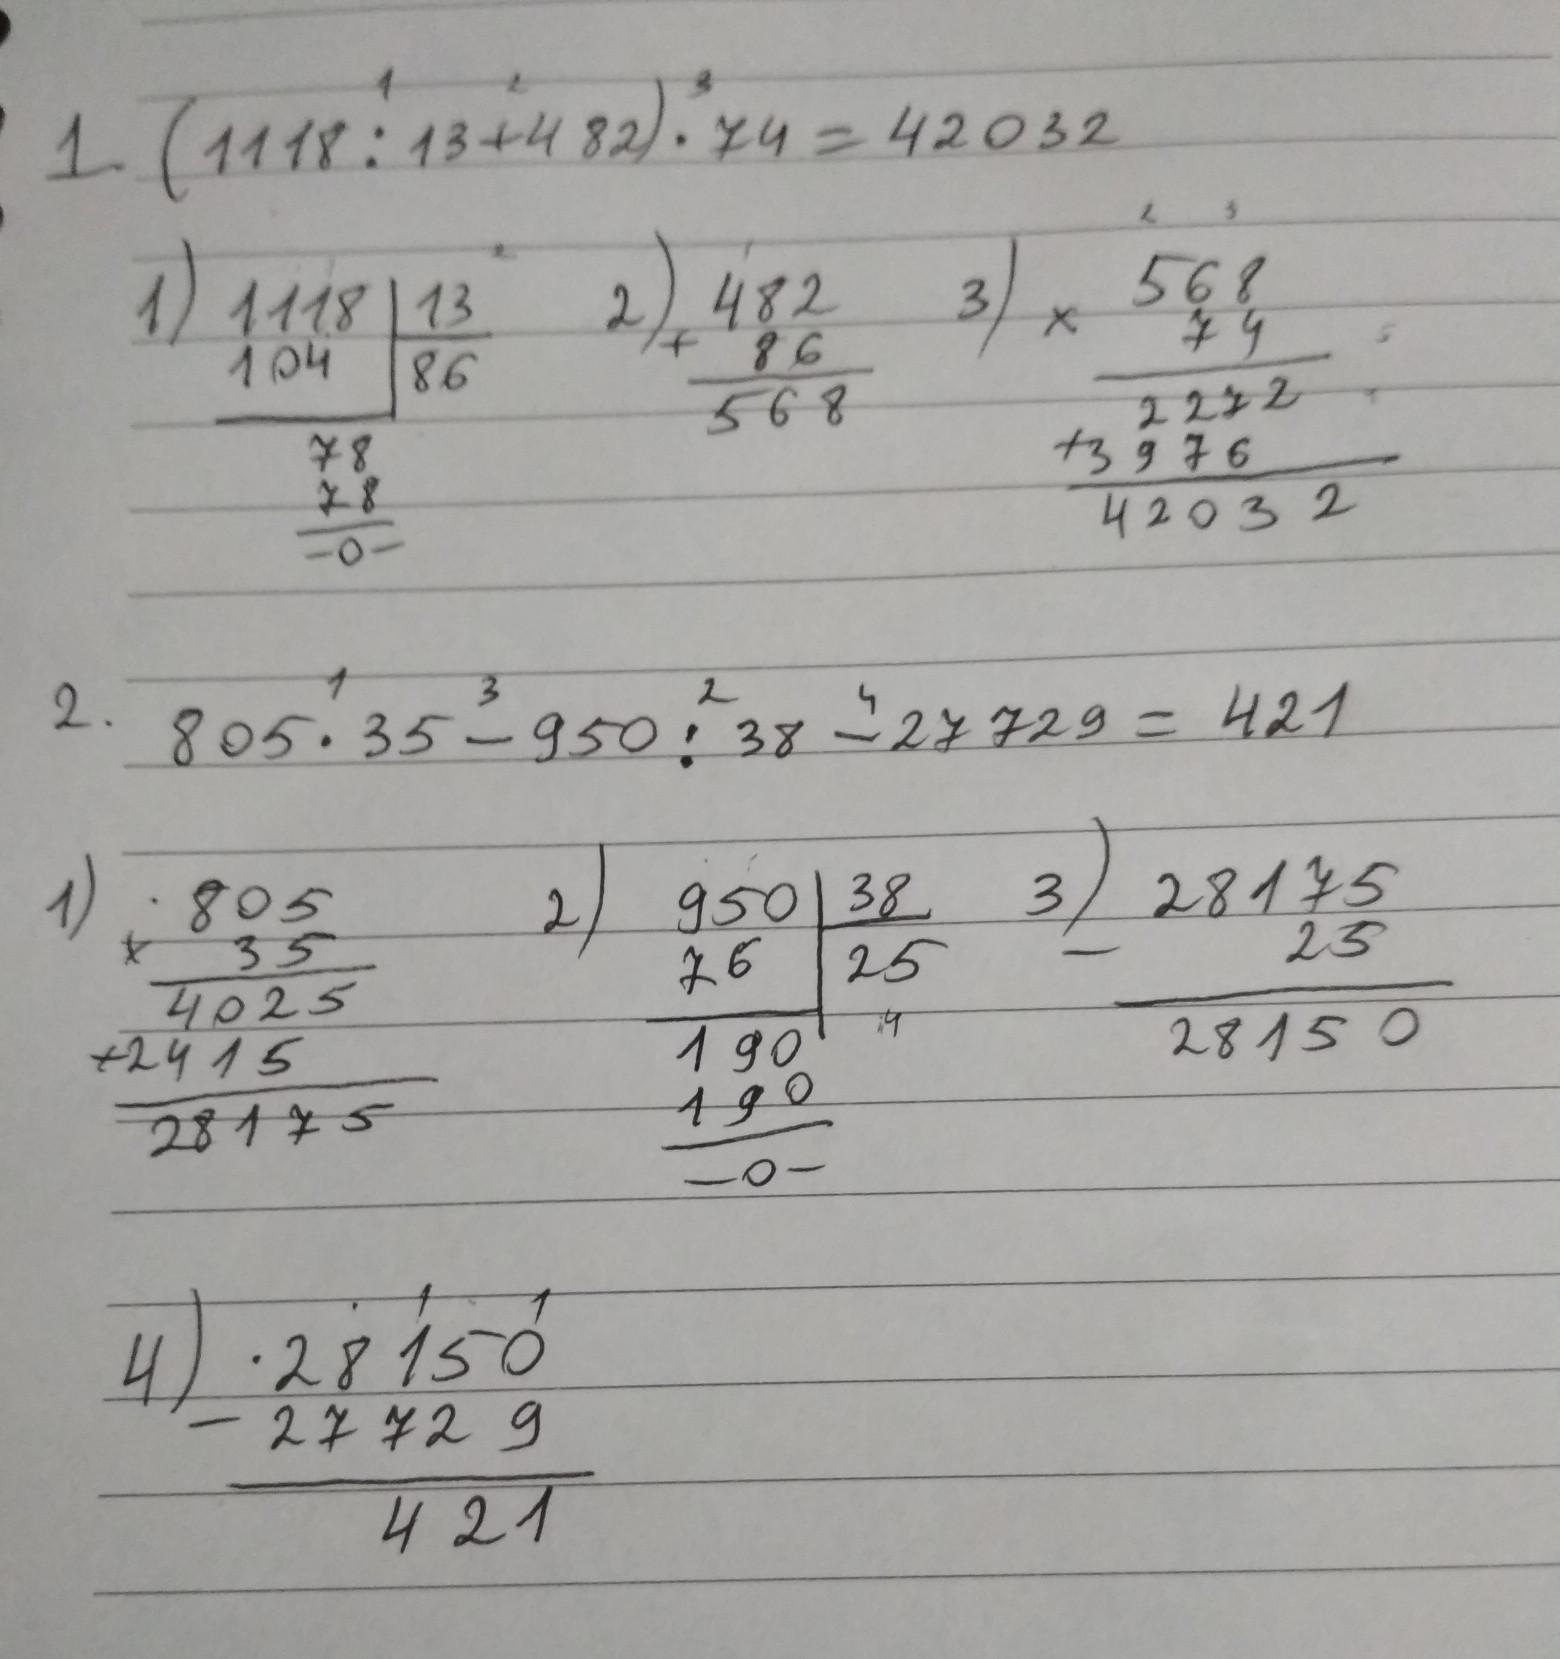 1 2 3
1. (1118:13+482)·74=42032
2 1 2 3
1) 1118 | 13 2) 482 3) 568
104 | 86 + 86 × 74
78 568 2272
78 +3976
-0- 42032
1 3 2 4
2. 805·35-950:38-27729=421
1) 805 2) 950 | 38 3) 28175
× 35 76 | 25 - 25
4025 190 4 28150
+2415 190
28175 -0-
1 1
4) ·28150
-27729
421